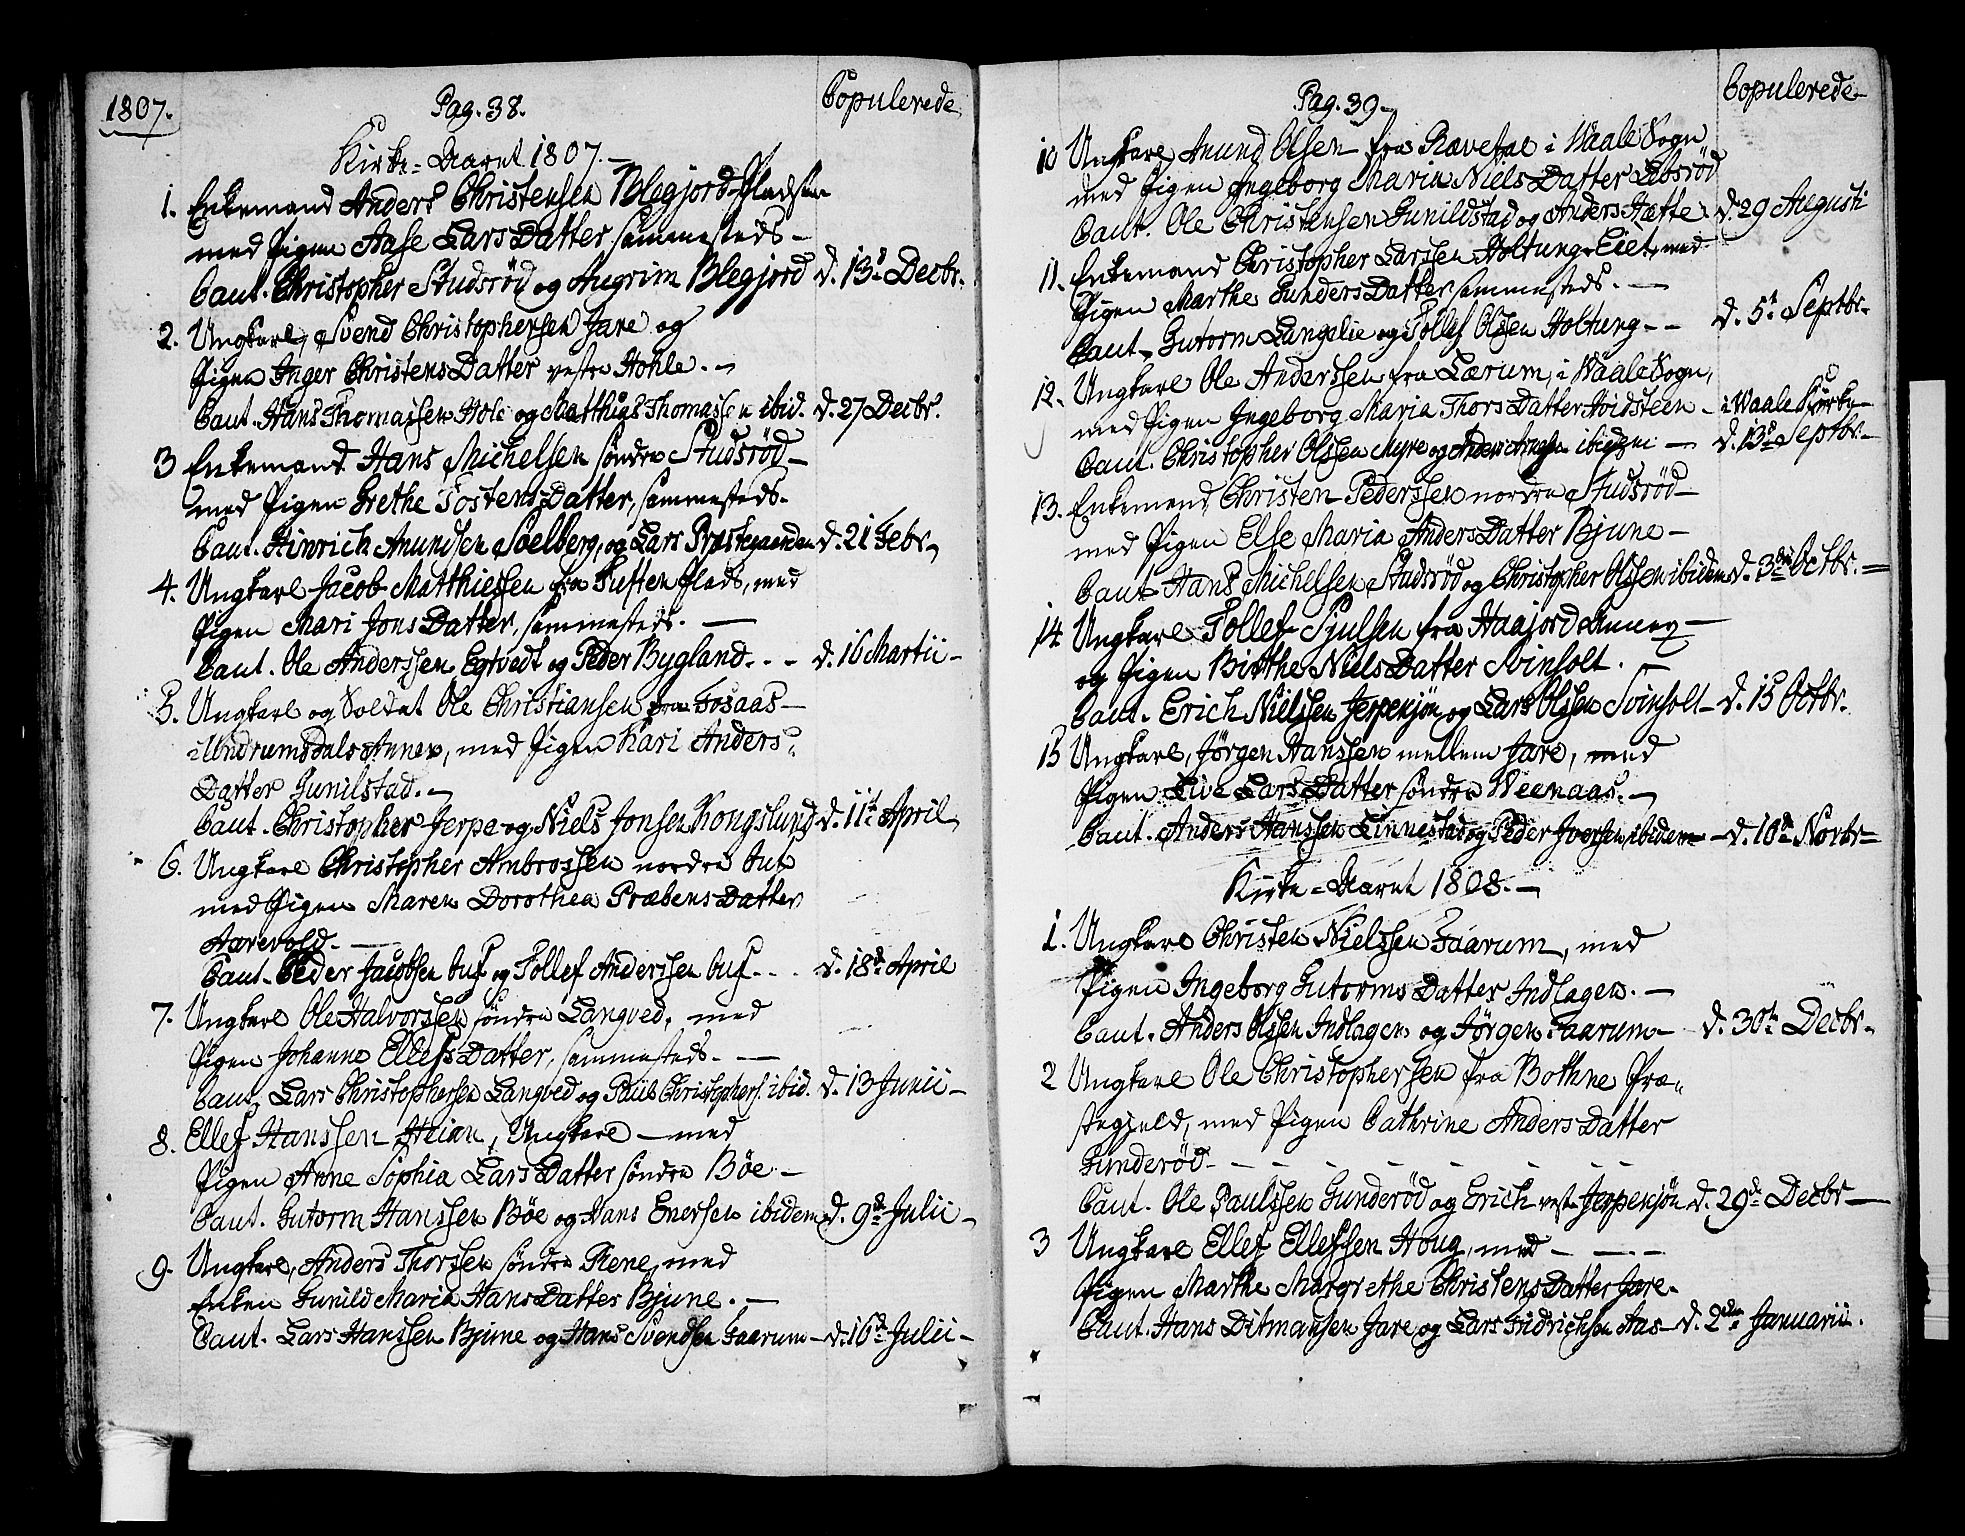 1807.
Pag. 38.
Copulerede
Kirke-Aaret 1807.
1. Enkemand Anders Christensen Blegjord-Pladsen
med Pigen Aase Lars Datter sammesteds -
Caut. Christopher Studsrød og Augrim Blegjord d. 13d Decbr.
2. Ungkarl, Svend Christophersen Jare og
Pigen Inger Christens Datter vestre Hohle. -
Caut. Hans Thomassen Hole og Matthias Thomassen ibid. d. 27 Decbr.
3 Enkemand Hans Michelsen søndre Studsrød -
med Pigen Grethe Tostens-Datter, sammesteds.
Caut. Hinrich Amundsen Soelberg, og Lars Præstegaarden d. 21 Febr.
4. Ungkarl Jacob Matthiesen fra Tuften Plads, med
Pigen Mari Jons Datter, sammesteds. -
Caut. Ole Anderssen Egtvedt og Peder Bygland. - - d. 16 Martii -
5. Ungkarl og Soldat Ole Christiansen fra Fosaas -
i Undrumsdals Annex, med Pigen Kari Anders
Datter Gunilstad. -
Caut. Christopher Jerpe og Niels Jonsen Kongslund d. 11te April
6. Ungkarl Christopher Ambrossen nordre Buf
med Pigen Maren Dorothea Præbens Datter
Aarevold. -
Caut. Peder Jacobsen Buf og Tollef Anderssen Buf - . . d. 18de April
7. Ungkarl Ole Halvorssen søndre Langved, med
Pigen Johanne Ellefs Datter, sammesteds. -
Caut. Lars Christophersen Langved og Paul Christophers. ibid. d. 13 Junii -
8. Ellef Hanssen Askian, Ungkarl - med
Pigen Anne Sophia Lars Datter søndre Bøe -
Caut. Gutorm Hanssen Bøe og Hans Enersen ibidem d. 9de Julii -
9. Ungkarl, Anders Thorssen søndre Rene, med
Enken Gunild Maria Hans Datter Bjune. -
Caut. Lars Hanssen Bjune og Hans Svendsen Faarum - d. 16de Julii -
Pag. 39 -
Copulerede -
10 Ungkarl Amund Olsen fra Rævetal i Waale Sogn
med Pigen Ingeborg Maria Niels Datter Ebsrød
Caut. Ole Christensen Gunildstad og Anders Hætte d. 29 Augusti
11. Enkemand Christopher Larssen Holtung-Eiet, med
Pigen Marthe Gunders Datter sammesteds. -
Caut. Gutorm Langelie og Tollef Olssen Holtung - - d. 5te Septbr.
12. Ungkarl Ole Anderssen fra Lærum, i Waale Sogn,
med Pigen Ingeborg Maria Thors Datter Hvidsteen - i Waale Kirke
Caut. Christopher Olssen Myre og Anders ibidem - d. 13de Septbr -
13. Enkemand Christen Pederssen nordre Studsrød -
med Pigen Else Maria Anders Datter Bjune -
Caut. Hans Michelsen Studsrød og Christopher Olssen ibidem d. 3die Octbr. -
14 Ungkarl Tollef Sjulsen fra Haajord Annex -
og Pigen Birthe Niels Datter Svinholt. -
Caut. Erich Nielssen Jerpenjøn og Lars Olssen Svinholt - d. 15 Octbr.
15 Ungkarl, Jørgen Hanssen mellem Jare, med
Pigen Live Lars Datter søndre Weenaas. -
Caut. Anders Hanssen Linnestad og Peder Iversen ibidem - d. 10de Novbr -
Kirke-Aaret 1808. -
1. Ungkarl Christen Nielssen Faarum, med
Pigen Ingeborg Gutorms Datter Indlagen. -
Caut. Anders Olssen Indlagen og Jørgen Faarum - d. 30te Decbr -
2 Ungkarl Ole Christophersen fra Bothne Præ-
stegjeld, med Pigen Cathrine Anders Datter
Gunderød - - - - - -
Caut. Ole Paulssen Gunderød og Erich vest. Jerpenjøn d. 29de Decbr -
3 Ungkarl Ellef Ellefssen Houg, med - - -
Pigen Marthe Margrethe Christens Datter Jare.
Caut. Hans Ditmansen Jare og Lars Fridrichsen Aas - d. 2den Januarii.